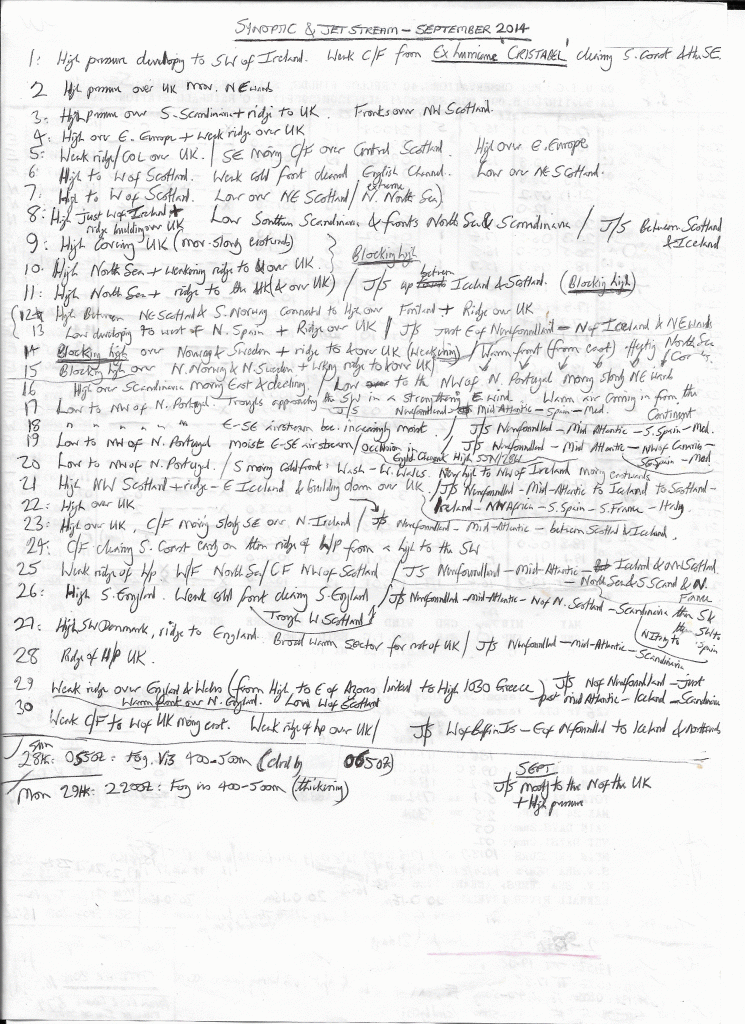 SYNOPTIC & JET STREAM - SEPTEMBER 2014
1: High pressure developing to SW of Ireland. Weak C/F from Ex hurricane 'CRISTABEL' clearing S. Coast 4th SE.
2 High pressure over UK mov. NEwards
3: High pressure over S. Scandinavia + ridge to UK. Fronts over NW Scotland.
4: High over E. Europe + Weak ridge over UK
5: Weak ridge/COL over UK. / SE moving C/F over Central Scotland. High over E. Europe
6: High to W of Scotland. Weak cold front cleared English Channel. Low over NE Scotland.
7: High to W of Scotland. Low over NE Scotland / extreme N. North Sea)
8: High Just W of Ireland + ridge building over UK Low Southern Scandinavia & fronts North Sea & Scandinavia / J/S Between Scotland & Iceland
9: High covering UK (mov. slowly eastwards)
Blocking high
10: High North Sea + weakening ridge to & over UK.
11: High North Sea + ridge to the UK (& over UK) / J/S up between Iceland & Scotland. (Blocking high)
12: High Between NE Scotland & S. Norway connected to High over Finland + Ridge over UK
13 Low developing to west of N. Spain + Ridge over UK / J/S Just E of Newfoundland - N of Iceland & NEwards
14 Blocking high over Norway & Sweden + ridge to & over UK (weakening) / Warm front (from east) affecting North Sea Coasts.
15 Blocking high over N. Norway & N. Sweden + wkng ridge to & over UK)
16 High over Scandinavia moving East & declining. / Low to the NW of N. Portugal moving slowly NE wards
17 Low to NW of N. Portugal. Troughs approaching the SW in a strengthening E wind. Warm air coming in from the Continent
J/S Newfoundland - Mid Atlantic - Spain - Med.
18 " " " " " E-SE airstream bec. increasingly moist. / J/S Newfoundland - Mid Atlantic - S. Spain - Med.
19 Low to NW of N. Portugal moist E-SE airstream / Occlusion in English Channel / J/S Newfoundland - Mid Atlantic - NW of Canaries - S. Spain - Med
20 Low to NW of N. Portugal. / S moving coldfront: Wash - W. Wales. New high to NW of Ireland moving eastwards
21 High NW Scotland + ridge - E Iceland & building down over UK / J/S Newfoundland - Mid-Atlantic to Iceland to Scotland - Ireland - NW Africa - S. Spain - S. France - Italy
22: High over UK
23: High over UK, C/F moving slowly SE over N. Ireland / J/S Newfoundland - Mid-Atlantic - between Scotland & Iceland.
24: C/F clearing S. Coast early on then ridge of H/P from a high to the SW
25 Weak ridge of Hp W/F North Sea/CF NW of Scotland / J/S Newfoundland - Mid-Atlantic - Iceland & NW Scotland - North Sea & S. Scand & N. France
26: High S. England. Weak cold front clearing S. England / J/S Newfoundland - Mid-Atlantic - N of N. Scotland - Scandinavia
Trough W. Scotland
27: High SW Denmark, ridge to England. Broad Warm Sector for rest of UK / J/S Newfoundland - mid-Atlantic - Scandinavia
28 Ridge of H/P UK.
29 Weak ridge over England & Wales (from High to E of Azores linked to High 1030 Greece) J/S N of Newfoundland - Just past mid Atlantic - Iceland - Scandinavia
Warm front over N. England. Low W of Scotland
30 Weak C/F to W of UK moving east. Weak ridge of hp over UK / J/S W of Baffin Is - E of Nfoundland to Iceland & Northwards
Sun
28th: 0550Z: Fog. Vis 400-500m (clrd by 0650Z)
Mon 29th: 2200Z: Fog vis 400-500m (thickening)
SEPT
J/S mostly to the N of the UK
+ High pressure